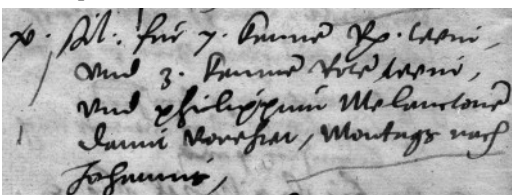 x. sil: für 7. kanne Rh. wein,
vnd 3. kanne Rote wein,
vnd philippum Melanctone
damit vorehret, Montags nach
Johannis,